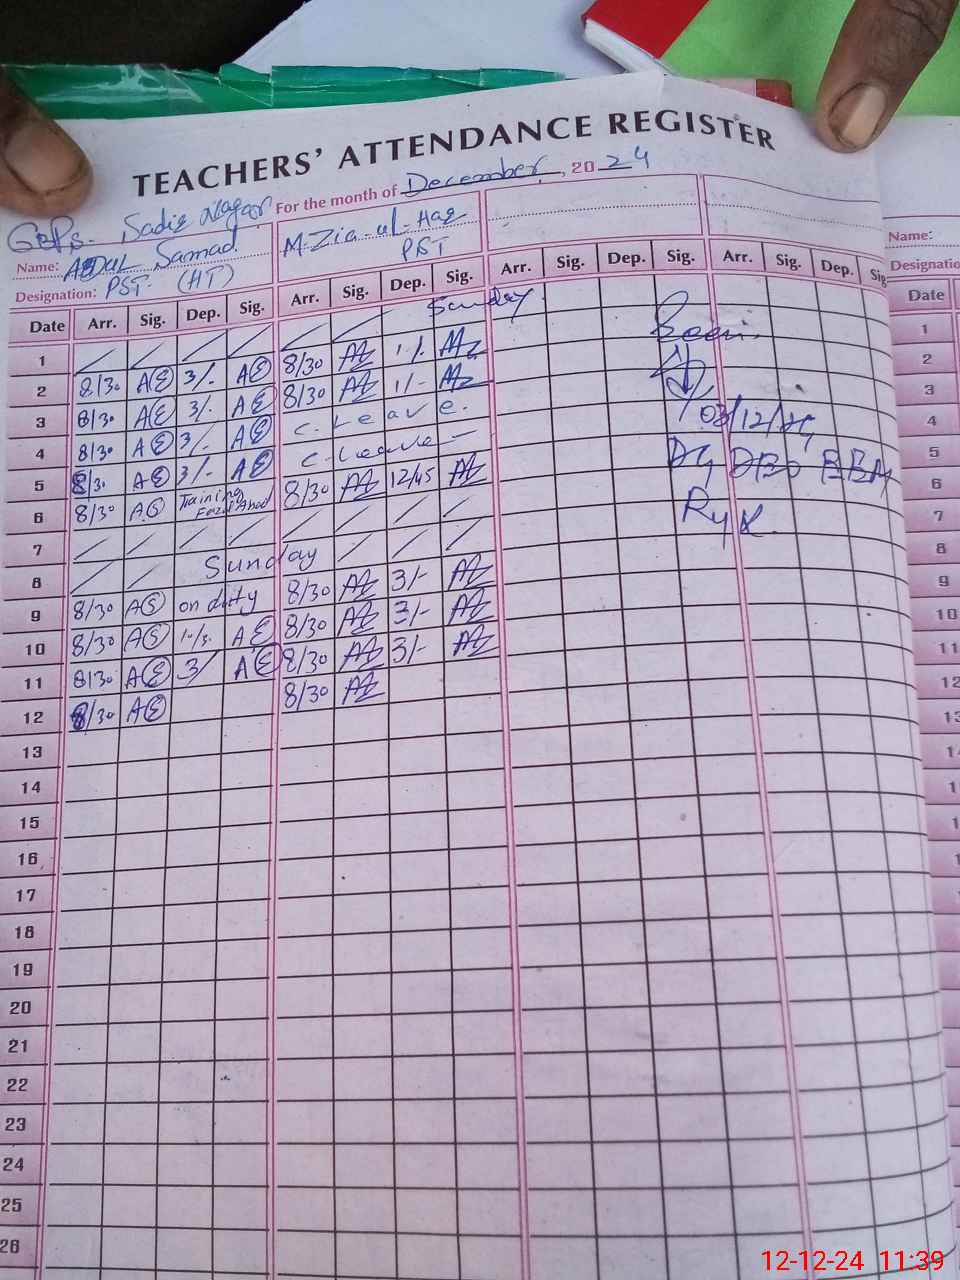 TEACHERS' ATTENDANCE REGISTER
For the month of December, 2024
GBPS. Sadiq Nagar
Name: Abdul Samad M. Zia-ul-Haq
Designation: PST (HT) PST
Date Arr. Sig. Dep. Sig. Arr. Sig. Dep. Sig. Arr. Sig. Dep. Sig. Arr. Sig. Dep. Sig
1 Sunday
2 8/30 3/- 8/30 1/-
3 8/30 3/- 8/30 1/-
4 8/30 3/- C. Leave.
5 8/30 3/- C. Leave
6 8/30 Training 8/30 12/45
7
8 Sunday
9 8/30 on duty 8/30 3/-
10 8/30 8/30 3/-
11 8/30 3/ 8/30 3/-
12 8/30 8/30
13
14
15
16
17
18
19
20
21
22
23
24
25
26
Seen
03/12/24
RYK
Name:
Designatio
Date
1
2
3
4
5
6
7
8
9
10
11
12
13
14
1
1
1
12-12-24 11:39